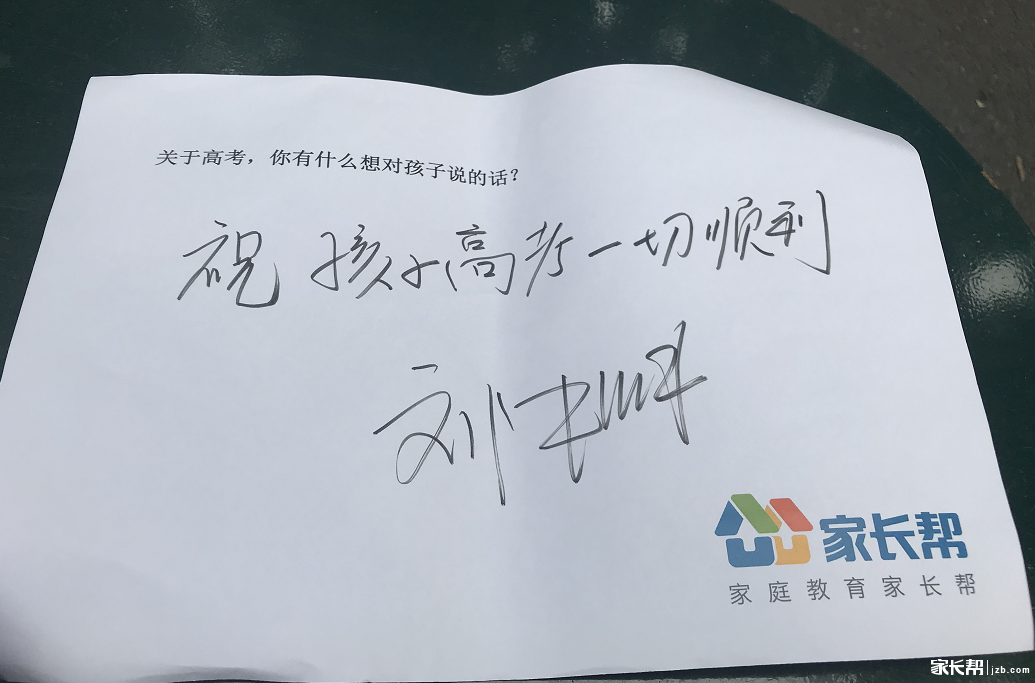 关于高考，你有什么想对孩子说的话？
祝孩子高考一切顺利
刘
家长帮
家庭教育家长帮
家长帮 jzb.com